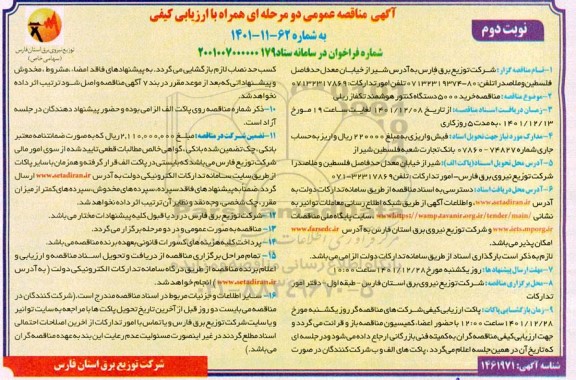 آگهی مناقصه عمومی دو مرحله ای همراه با ارزیابی کیفی
به شماره ۶۲-۱۱-۱۴۰۱
شماره فراخوان در سامانه ستاد ۲۰۰۱۰۰۷۰۰۰۰۰۰۱۷۹
نوبت دوم
توزیع نیروی برق استان فارس
(سهامی خاص)
۱- نام مناقصه گزار: شرکت توزیع برق فارس به آدرس شیراز خیابان معدل حدفاصل
فلسطین و ملاصدرا تلفن: ۸۰-۰۷۱۳۲۳۱۹۳۷۴ تلفن امور تدارکات: ۰۷۱۳۲۳۱۷۸۶۹
۲- موضوع مناقصه: مناقصه خرید ۵۰۰۰ دستگاه کنتور هوشمند تکفاز ریلی
۳- زمان دریافت اسناد مناقصه: از تاریخ ۱۴۰۱/۱۲/۰۸ لغایت ساعت ۱۹ مورخ
۱۴۰۱/۱۲/۱۳ ، به مدت ۵ روز کاری
۴- مدارک مورد نیاز جهت تحویل اسناد: فیش واریزی به مبلغ ۲۲۰۰۰۰ ریال واریز به حساب
جاری شماره ۷۴۸۲۷ - ۰۷۸۶۰ بانک تجارت شعبه فلسطین شیراز
۵- آدرس محل تحویل اسناد (پاکت الف): شیراز خیابان معدل حدفاصل فلسطین و ملاصدرا
شرکت توزیع نیروی برق فارس- امور تدارکات: تلفن ۳۲۳۱۷۸۶۹-۰۷۱
۶- محل دریافت اسناد: دسترسی به اسناد مناقصه از طریق سامانه تدارکات دولت به
آدرس www.setadiran.ir و اطلاعات آگهی از طریق شبکه اطلاع رسانی معاملات توانیر به
نشانی https://wamp.tavanir.org.ir/tender/main/ سایت پایگاه ملی مناقصات
www.iets.mporg.ir و شرکت توزیع نیروی برق استان فارس به آدرس www.farsedc.ir
امکان پذیر می باشد.
لازم به ذکر است بارگذاری اسناد از طریق سامانه تدارکات دولت الزامی می باشد.
۷- مهلت ارسال پیشنهاد ها: روز یکشنبه مورخ ۱۴۰۱/۱۲/۲۸ ساعت ۱۰:۰۰
۸- محل برگزاری مناقصه: شرکت توزیع نیروی برق استان فارس - طبقه اول - دفتر امور
تدارکات
۹- زمان بازگشایی پاکات: پاکت ارزیابی کیفی شرکت های مناقصه گر روز یکشنبه مورخ
۱۴۰۱/۱۲/۲۸ ساعت ۱۲:۰۰ با حضور اعضاء کمیسیون مناقصه باز و قرائت می گردد و
جهت ارزیابی کیفی مناقصه گران به کمیته فنی بازرگانی ارجاع داده می شود و در جلسه ای
که تاریخ آن در همین جلسه اعلام می گردد، پاکت های الف و ب شرکت کنندگان در صورت
کسب حد نصاب لازم بازگشایی می گردد. به پیشنهادهای فاقد امضاء، مشروط، مخدوش
و پیشنهاداتی که بعد از موعد مقرر در بند ۷ آگهی مناقصه واصل شود ترتیب اثر داده
نخواهد شد.
۱۰- ذکر شماره مناقصه روی پاکت الف الزامی بوده و حضور پیشنهاد دهندگان در جلسه
آزاد است.
۱۱- تضمین شرکت در مناقصه: مبلغ ۲,۱۱۰,۰۰۰,۰۰۰ ریال که به صورت ضمانتنامه معتبر
بانکی، چک تضمین شده بانکی، گواهی خالص مطالبات قطعی تایید شده از سوی امور مالی
شرکت توزیع فارس می باشد که بایستی در پاکت الف قرار گرفته و همزمان با سایر پاکات
از طریق سایت سامانه تدارکات الکترونیکی دولت به آدرس www.setadiran.ir ارسال
گردد. ضمنا به پیشنهادهای فاقد سپرده، سپرده های مخدوش، سپرده های کمتر از میزان
مقرر، چک شخصی، وجه نقد و نظایر آن ترتیب اثر داده نخواهد شد.
۱۲- شرکت توزیع برق فارس در رد یا قبول کلیه پیشنهادات مختار می باشد.
۱۳- مناقصه به صورت عمومی و در دو مرحله برگزار می گردد.
۱۴- پرداخت کلیه هزینه های کسورات قانونی بعهده برنده مناقصه می باشد.
۱۵- تمام مراحل برگزاری مناقصه از دریافت و تحویل اسناد مناقصه و ارزیابی و
اعلام برنده مناقصه از طریق درگاه سامانه تدارکات الکترونیکی دولت ( به آدرس
www.setadiran.ir ) انجام خواهد شد.
۱۶- سایر اطلاعات و جزئیات مربوط در اسناد مناقصه مندرج است. (شرکت کنندگان در
مناقصه می بایست دو روز قبل از آخرین تاریخ تحویل پاکت ها با مراجعه به سایت توانیر
و یا سایت شرکت توزیع برق فارس و یا تماس با امور تدارکات از آخرین اصلاحات احتمالی
اسناد مطلع گردند در غیر اینصورت مسئولیت عدم رعایت این بند به عهده مناقصه گران
می باشد.)
شناسه آگهی: ۱۴۶۱۹۷۱
شرکت توزیع برق استان فارس